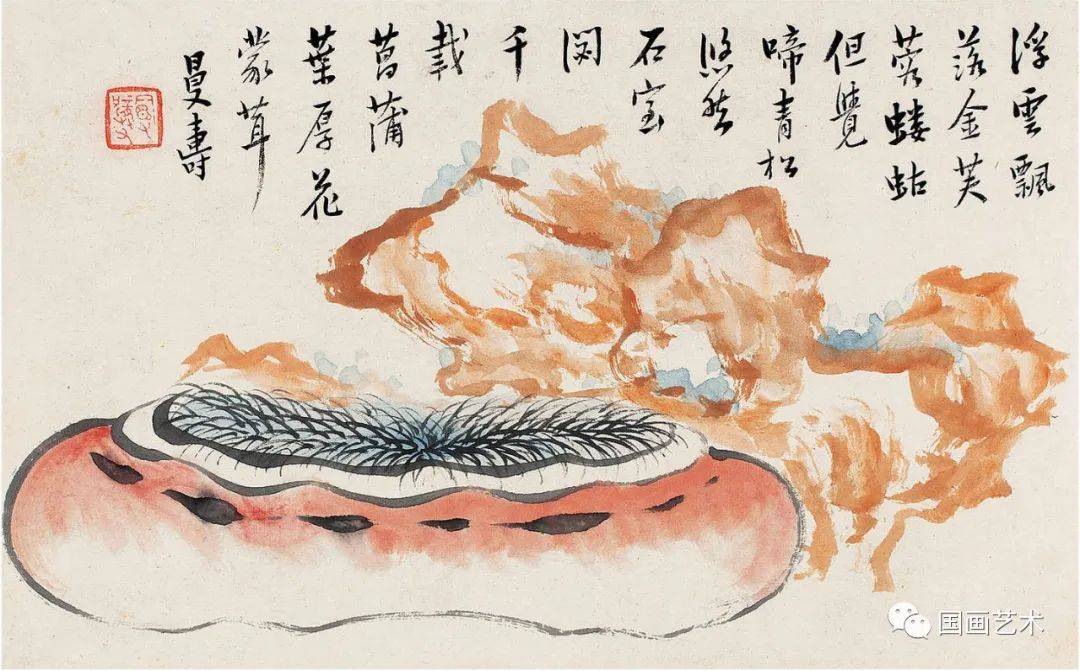 浮雲飄
落金芙
蓉螻蛄
但覺
啼青松
悠然
石室
閟
千
載
菖蒲
葉厚花
蒙茸
曼壽
国画艺术